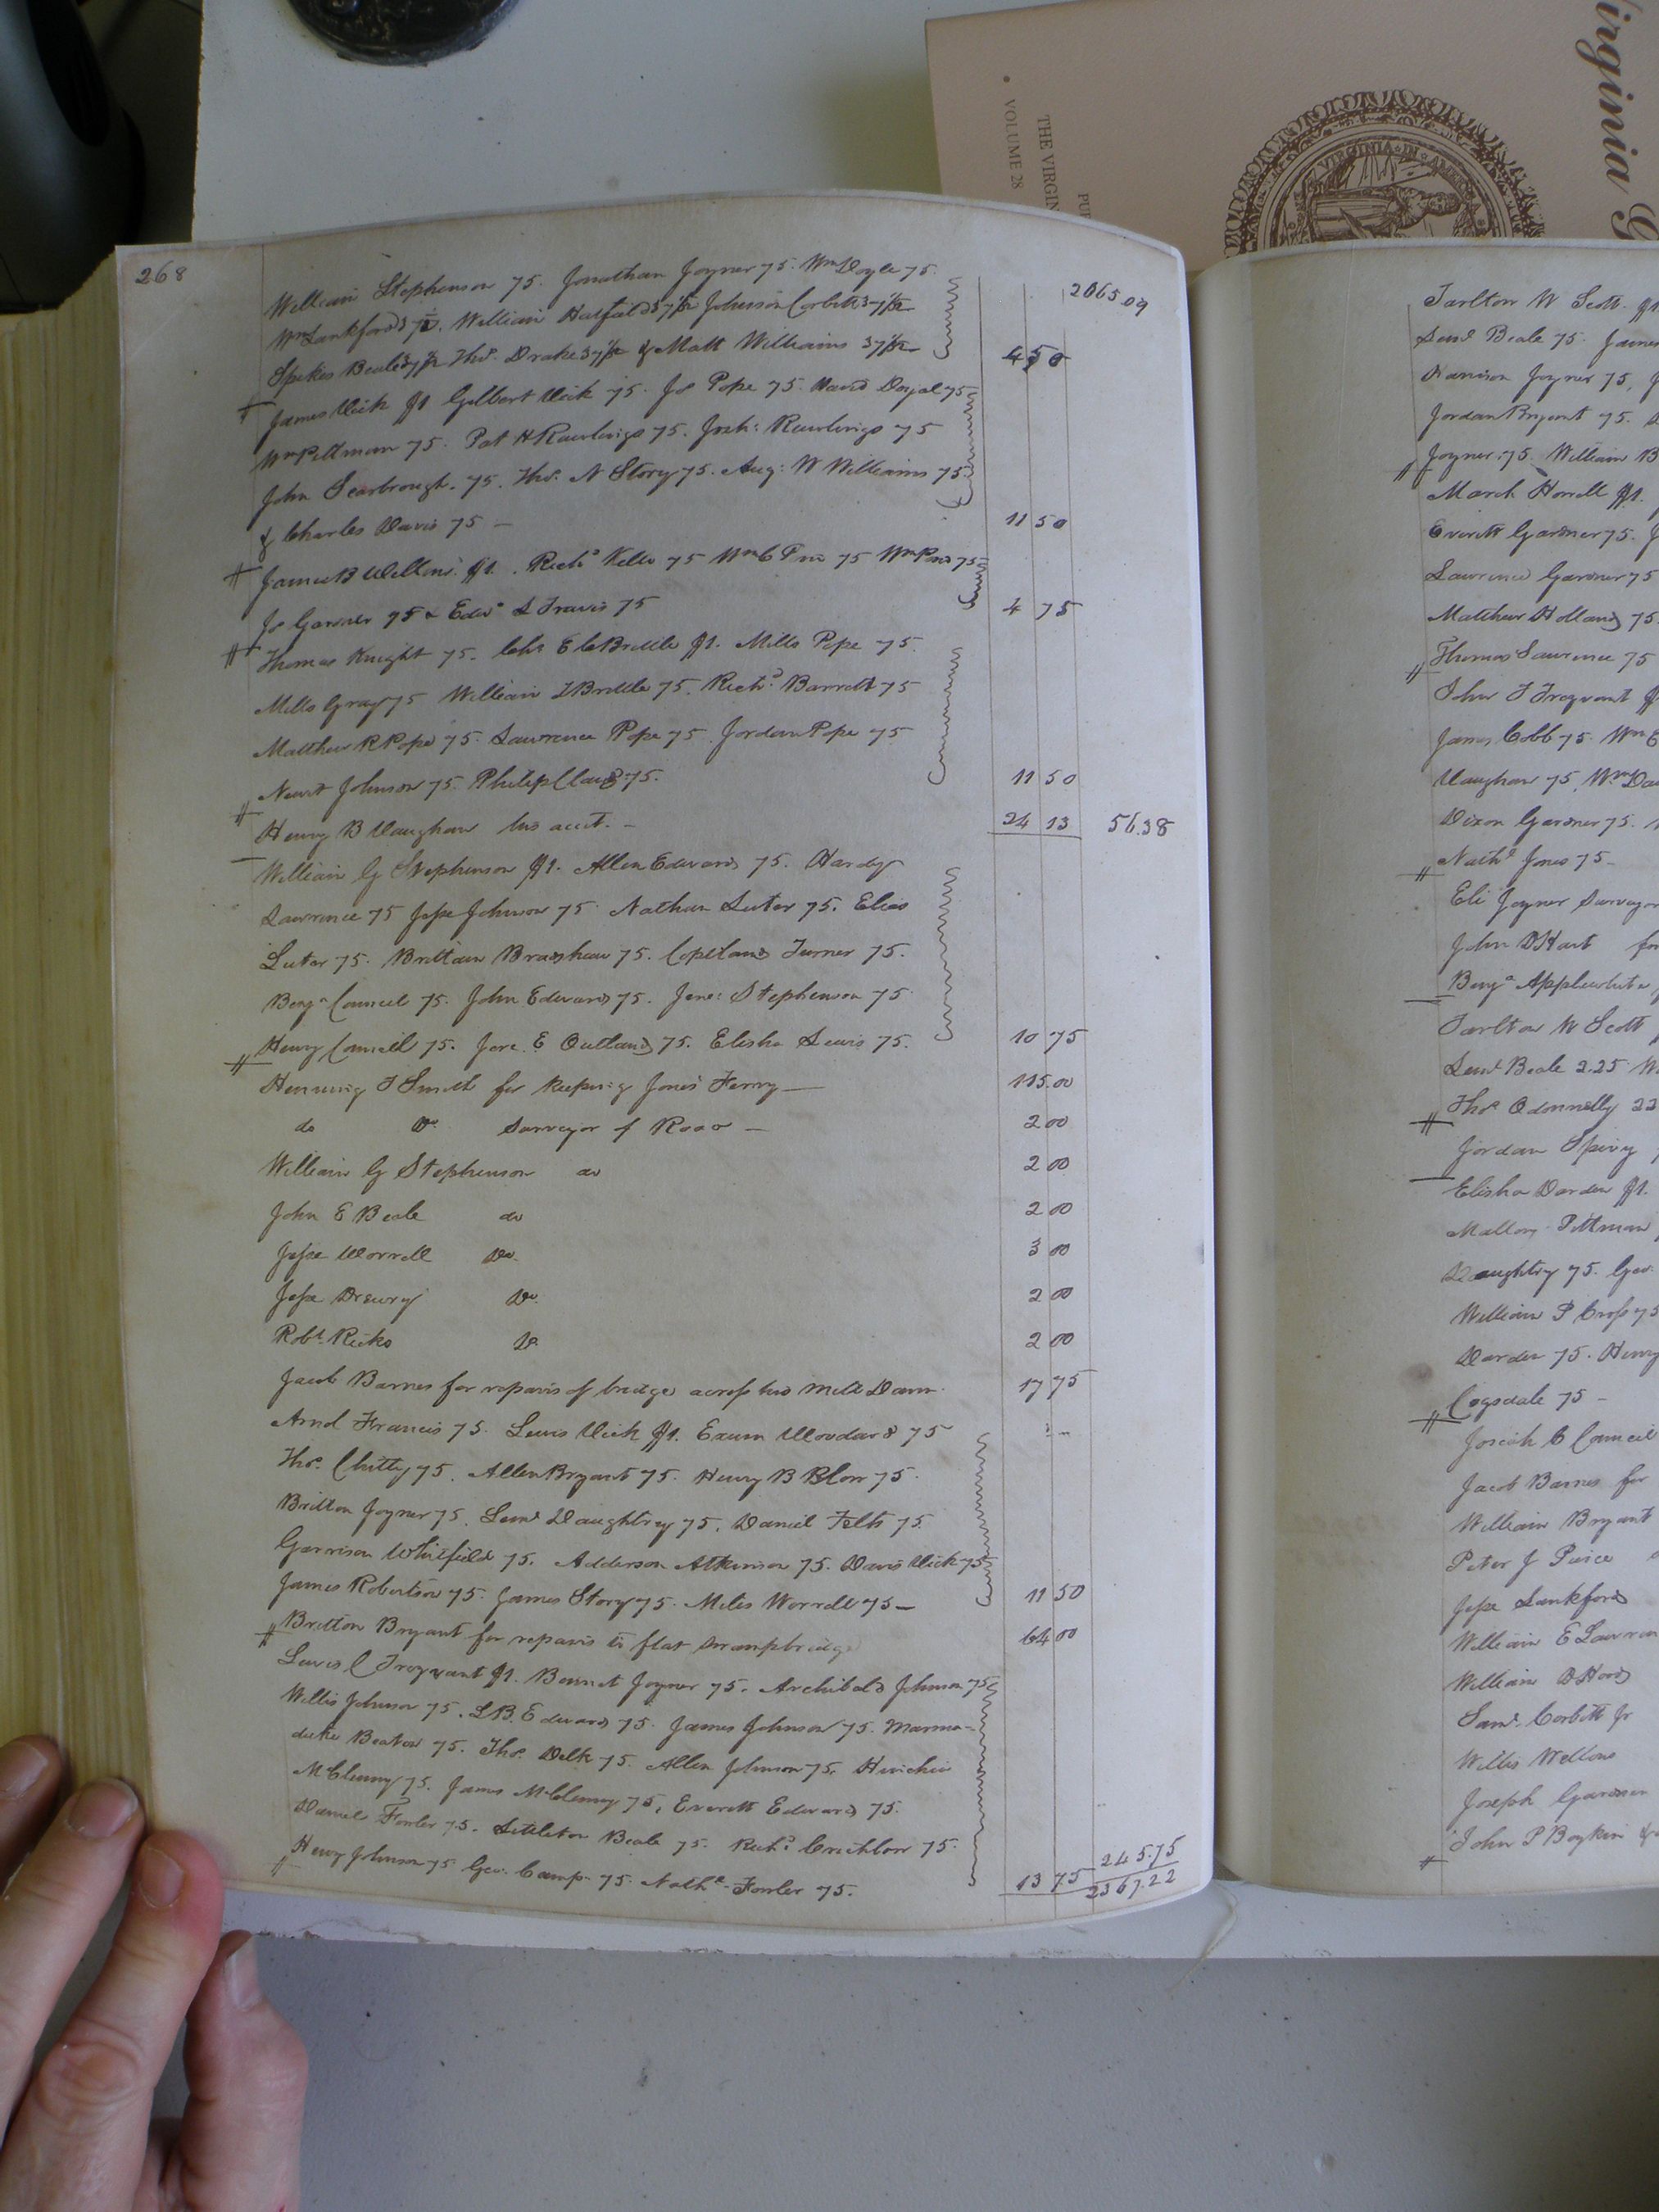 irginia G
THE VIRGIN
VOLUME 28
PU
VIRGINIA IN AME
268
William Stephenson 75. Jonathan Joyner 75. Wm Doyle 75.
2065.09
Wm Lankford 75. William Hatfield 37½ Johnson Corbitt 37½
Spikes Beale 37½ Thos. Drake 37½ & Matt Williams 37½
4 50
James Vick $1. Gilbert Vick 75. Jo Pope 75. David Doyal 75
Wm Pittman 75. Pat H Rawlings 75. Jos h: Rawlings 75
John Scarbrough. 75. Thos. N Story 75. Aug: W Williams 75.
& Charles Davis 75 —
11 50
James B Wellons $1. Richd Kello 75 Wm C 75 Wm 75
Jo Garner 75 & Edwd L Travis 75
4 75
Thomas Knight 75. $1. Mills Pope 75.
Mills Gray 75 William J Brittle 75. Richd Barrett 75
Matthew R Pope 75. Lawrence Pope 75. Jordan Pope 75
Newit Johnson 75. Philip Claud 75.
11 50
Henry B Vaughan his acct. —
24 13 56.38
William G Stephenson $1. Allen Edwards 75. Hardy
Lawrence 75 Jesse Johnson 75. Nathan Luter 75. Elias
Luter 75. Brittain Bradshaw 75. Copeland Turner 75.
Benja Council 75. John Edwards 75. Jere: Stephenson 75
Henry Council 75. Jere. E Outland 75. Elisha Lewis 75.
10 75
Henning T Smith for keeping Jones Ferry —
115.00
do Do. Surveyor of Road —
2 00
William G Stephenson do
2 00
John E Beale do
2 00
Jesse Worrell Do.
3 00
Jesse Drewry Do.
2 00
Robt. Ricks Do.
2 00
Jacob Barnes for repairs of bridge across his Mill Dam.
17 75
Arnd Francis 75. Lewis Vick $1. Exum Woodard 75
Thos. Chitty 75. Allen Bryant 75. Henry B Blow 75.
Britton Joyner 75. Saml Daughtrey 75. Daniel Felts 75.
Garrison Whitfield 75. Adderson Atkinson 75. Davis Vick 75
James Robertson 75. James Story 75. Miles Worrell 75 —
11 50
Britton Bryant for repairs to flat swamp bridge
64 00
Lewis C Trezvant $1. Bennet Joyner 75. Archibald Johnson 75
Willis Johnson 75. L.B. Edwards 75. James Johnson 75. Marma-
duke Beaton 75. Thos. Delk 75. Allen Johnson 75. Hinchie
McClenny 75. James McClenny 75. Everett Edwards 75.
Daniel Fowler 75. Littleton Beale 75. Richd Crichlow 75.
Henry Johnson 75 Geo. Camp. 75. Nathl Fowler 75.
13 75
245.75
2367.22
Tarlton W Scott. $1
Saml Beale 75. James
Harrison Joyner 75, J
Jordan Bryant 75.
Joyner 75. William B
March Horrell $1.
Everett Gardner 75. J
Lawrence Gardner 75
Matthew Holland 75.
Thomas Lawrence 75
John T Trezvant $
James Cobb 75. Wm E
Vaughan 75, Wm Da
Dixon Gardner 75.
Nathl Jones 75 —
Eli Joyner Surveyor
John D Hart for
Benja Applewhite
Tarlton W Scott
Saml Beale 2.25 W
Thos Odonnelly 22
Jordan Spivy
Elisha Darden $1.
Mallory Pittman
Daughtry 75. Geo.
William P Cross 75
Darden 75. Henry
Cogsdale 75 —
Josiah C Council
Jacob Barnes for
William Bryant
Peter J Peirce
Jesse Lankford
William E Lawren
William B Hood
Saml. Corbitt Jr
Willis Wellons
Joseph Gardner
John P Boykin &